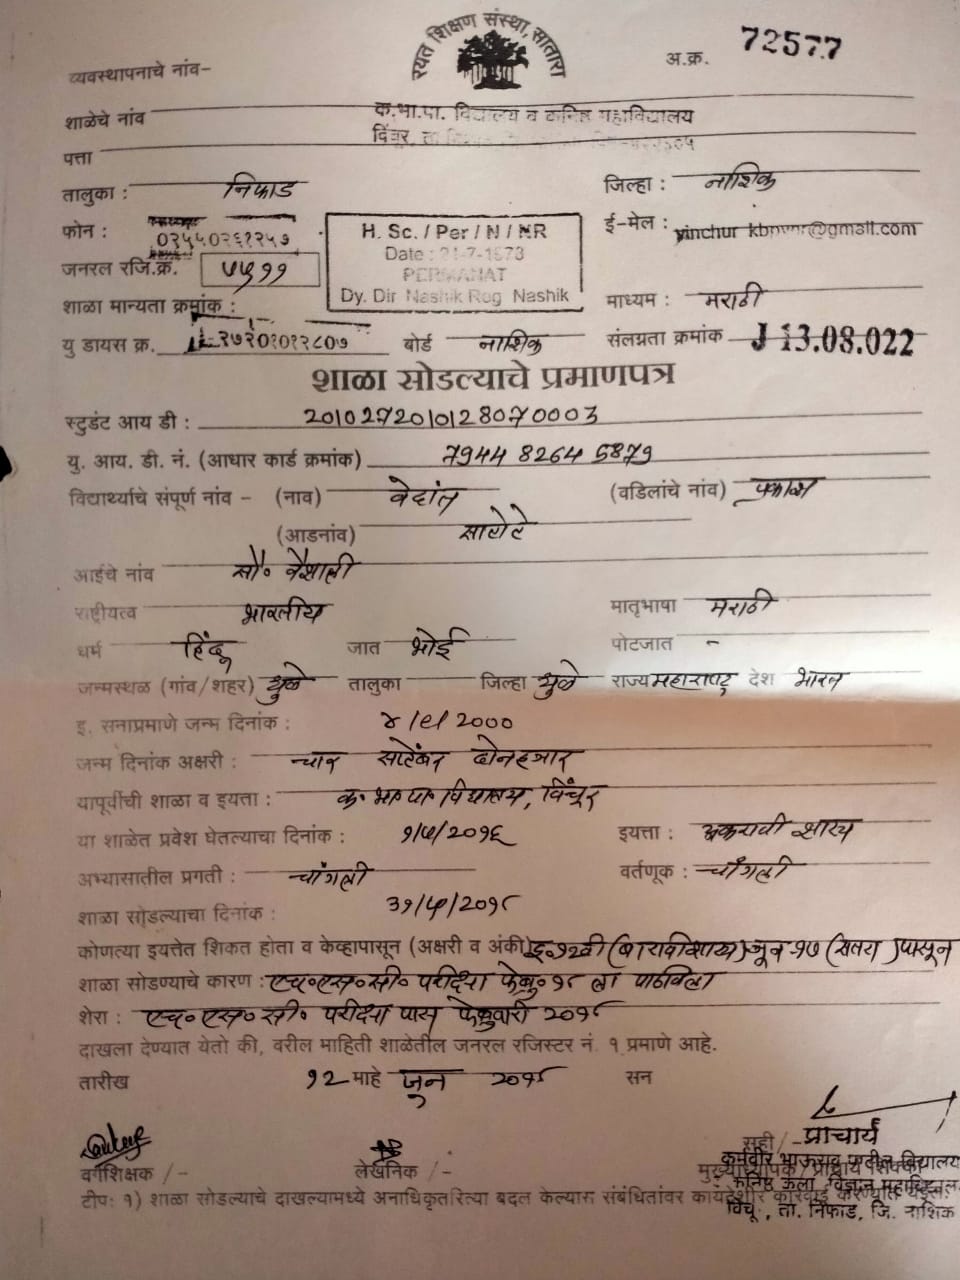 रयत शिक्षण संस्था, सातारा
व्यवस्थापनाचे नांव-
अ.क्र. 72577
शाळेचे नांव क.भा.पा. विद्यालय व कनिष्ठ महाविद्यालय
पत्ता
तालुका : निफाड जिल्हा : नाशिक
फोन : ०२५५०२६१२५७ ई-मेल : vinchur kbpvnr@gmail.com
H. Sc. / Per / N / NR
Date : 21-7-1673
PERMANAT
Dy. Dir Nashik Reg Nashik
जनरल रजि.क्र. ५५११
शाळा मान्यता क्रमांक : माध्यम : मराठी
यु डायस क्र. २७२०१०१२८०७ बोर्ड नाशिक संलग्नता क्रमांक J 13.08.022
शाळा सोडल्याचे प्रमाणपत्र
स्टुडंट आय डी : 2010272010128070003
यु. आय. डी. नं. (आधार कार्ड क्रमांक) 7944 8264 5879
विद्यार्थ्याचे संपूर्ण नांव - (नाव) वेदांत (वडिलांचे नांव) प्रकाश
(आडनांव) साटोटे
आईचे नांव सौ. वैशाली
राष्ट्रीयत्व भारतीय मातृभाषा मराठी
धर्म हिंदू जात भोई पोटजात -
जन्मस्थळ (गांव/शहर) धुळे तालुका जिल्हा धुळे राज्य महाराष्ट्र देश भारत
इ. सनाप्रमाणे जन्म दिनांक : ४/९/2000
जन्म दिनांक अक्षरी : चार सप्टेंबर दोनहजार
यापूर्वीची शाळा व इयता : क. भा. पा. विद्यालय, विंचूर
या शाळेत प्रवेश घेतल्याचा दिनांक : १/५/२०१६ इयत्ता : अकरावी शास्त्र
अभ्यासातील प्रगती : चांगली वर्तणूक : चांगली
शाळा सोडल्याचा दिनांक : ३१/५/२०१८
कोणत्या इयत्तेत शिकत होता व केव्हापासून (अक्षरी व अंकी) इ. १२वी (बारावी शास्त्र) जून १७ (सतरा) पासून
शाळा सोडण्याचे कारण : एच. एस. सी. परीक्षा फेब्रु. १८ ला पाठविला
शेरा : एच. एस. सी. परीक्षा पास फेब्रुवारी २०१८
दाखला देण्यात येतो की, वरील माहिती शाळेतील जनरल रजिस्टर नं. १ प्रमाणे आहे.
तारीख १२ माहे जून २०१८ सन
वर्गशिक्षक /- लेखनिक /- सही /- प्राचार्य
मुख्याध्यापक / प्राचार्य शिक्का
कर्मवीर भाऊराव पाटील विद्यालय
कनिष्ठ कला, विज्ञान महाविद्यालय
टीप: १) शाळा सोडल्याचे दाखल्यामध्ये अनाधिकृतरित्या बदल केल्यास संबंधितांवर कायदेशीर कारवाई करण्यात येईल.
विंचूर, ता. निफाड, जि. नाशिक